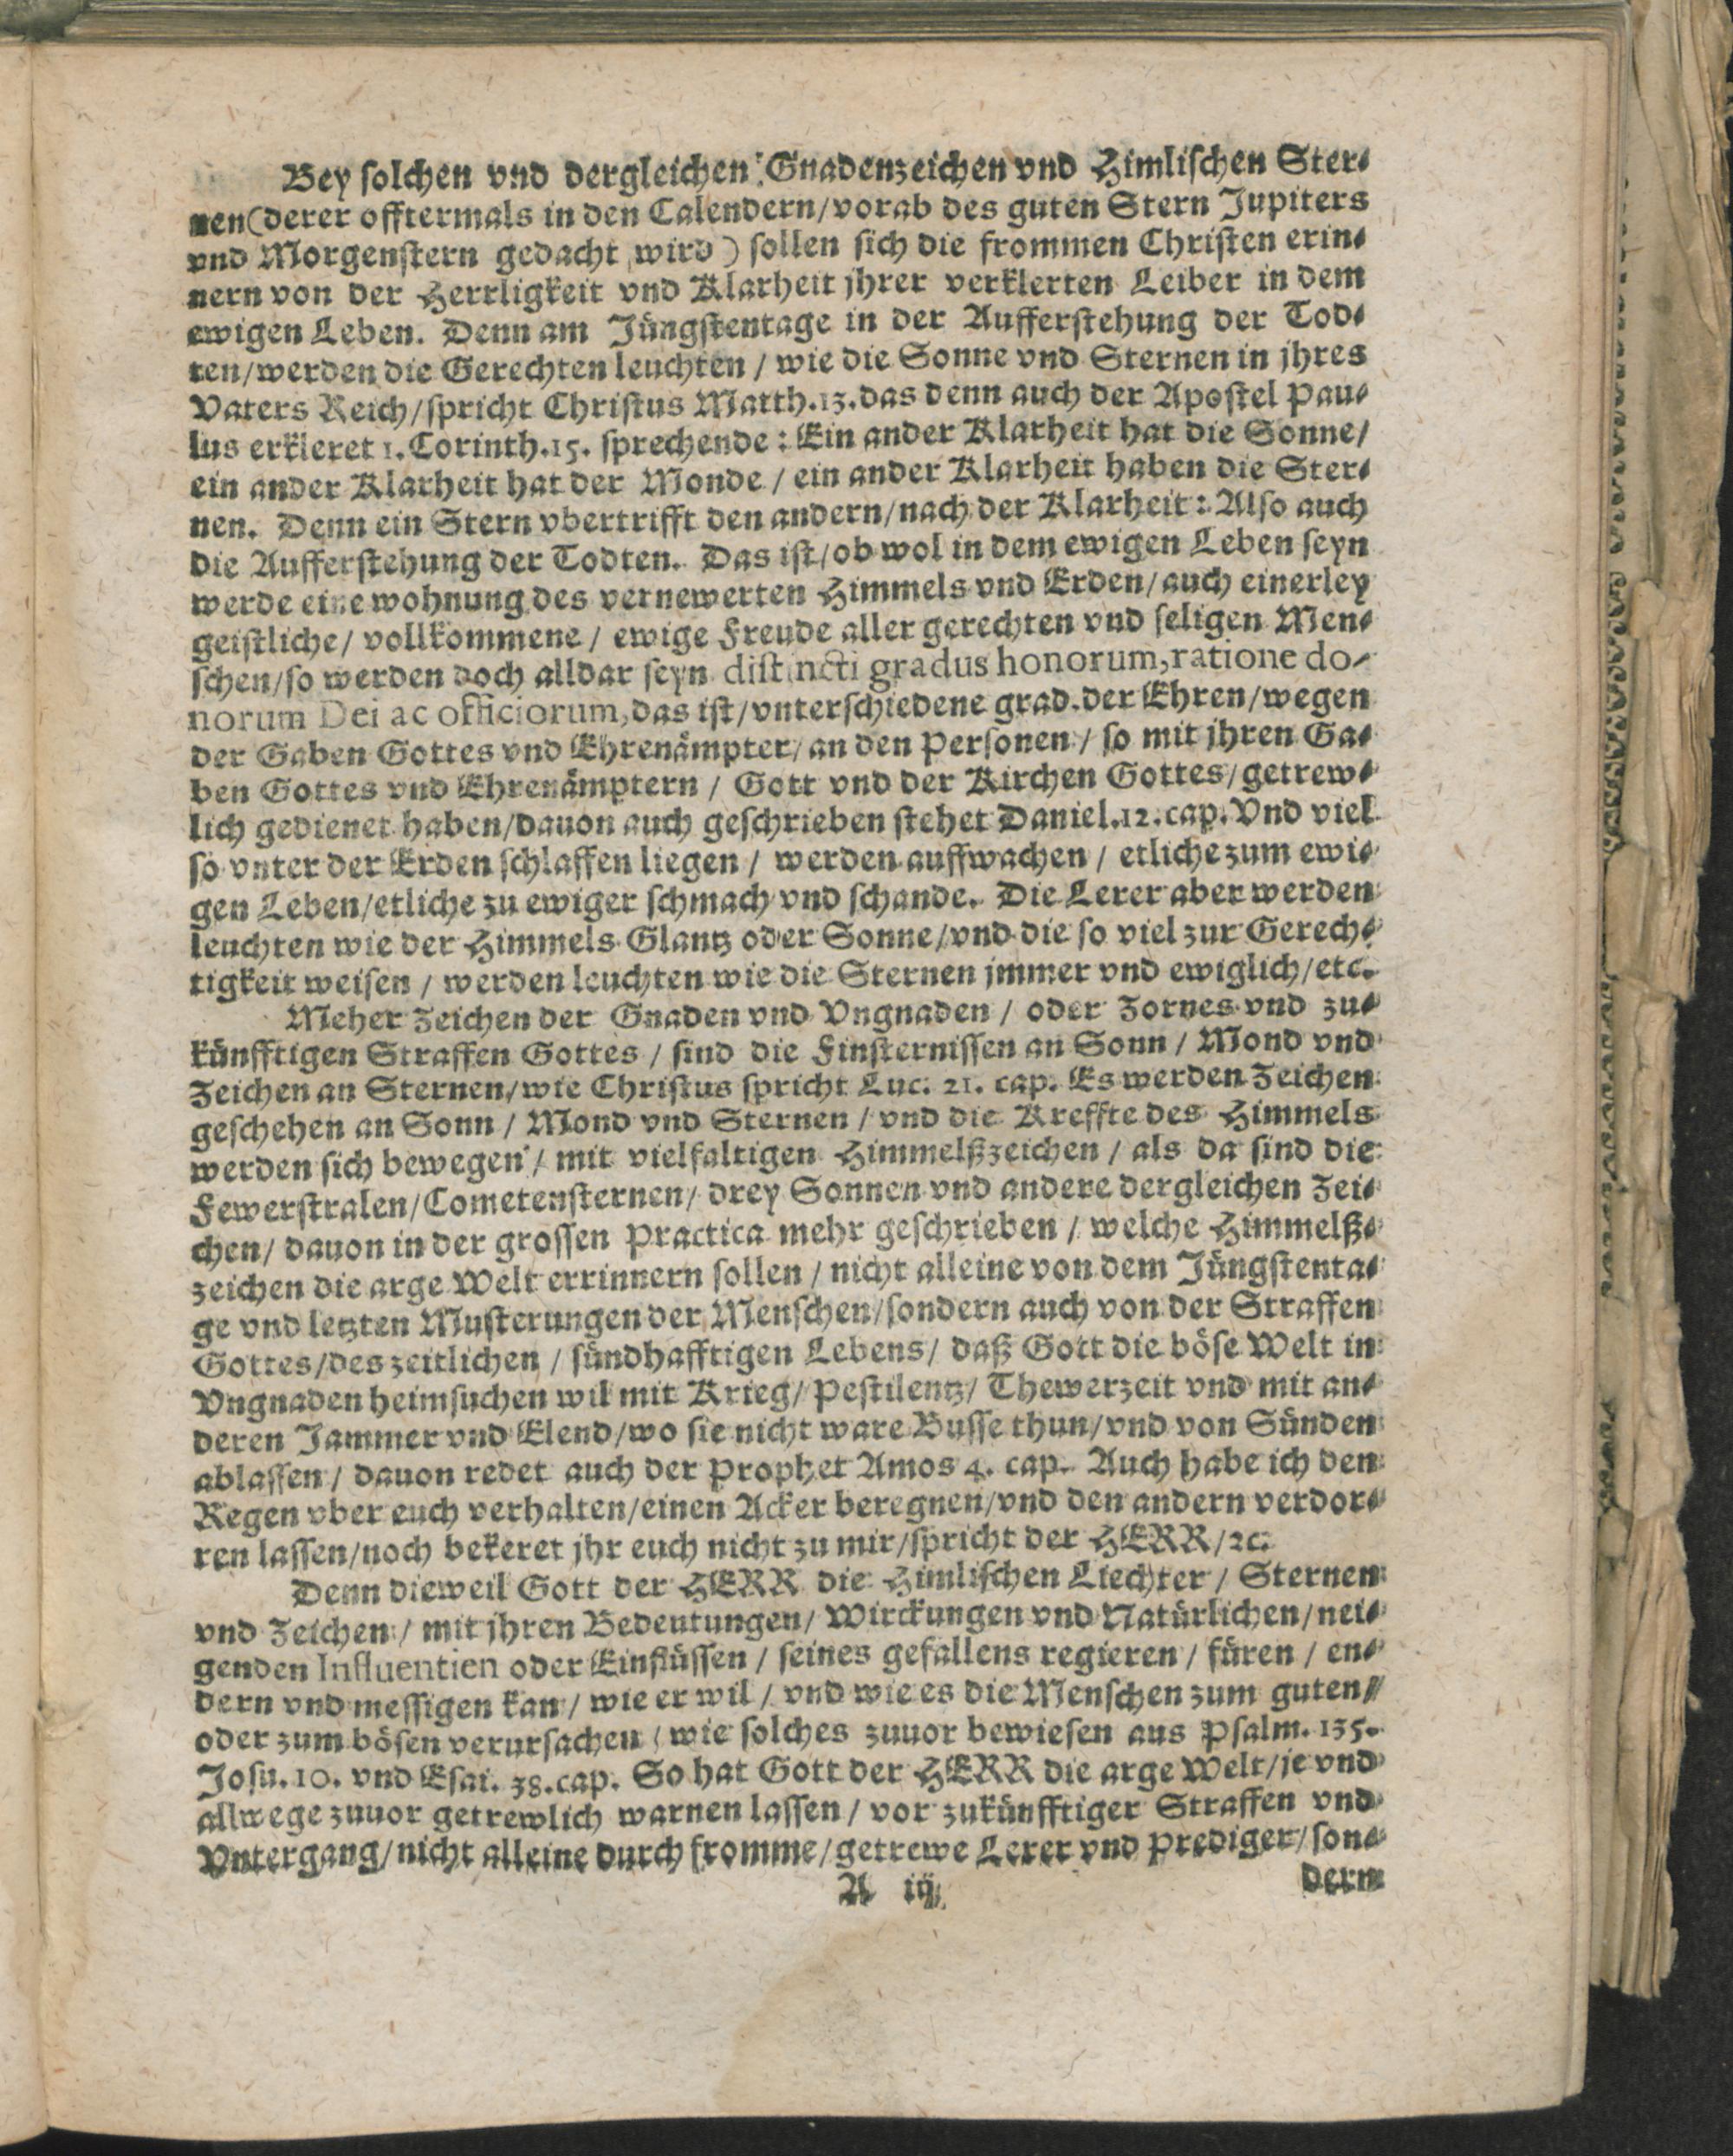 Bey solchen vnd dergleichen Gnadenzeichen vnd Himlischen Ster-
nen (derer offtermals in den Calendern/vorab des guten Stern Jupiters
vnd Morgenstern gedacht wird) sollen sich die frommen Christen erin-
nern von der Herrligkeit vnd Klarheit jhrer verklerten Leiber in dem
ewigen Leben. Denn am Jüngstentage in der Aufferstehung der Tod-
ten/werden die Gerechten leuchten / wie die Sonne vnd Sternen in jhres
Vaters Reich/spricht Christus Matth.13.das denn auch der Apostel Pau-
lus erkleret 1. Corinth.15. sprechende: Ein ander Klarheit hat die Sonne/
ein ander Klarheit hat der Monde / ein ander Klarheit haben die Ster-
nen. Denn ein Stern vbertrifft den andern/nach der Klarheit: Also auch
die Aufferstehung der Todten. Das ist/ob wol in dem ewigen Leben seyn
werde eine wohnung des vernewerten Himmels vnd Erden/auch einerley
geistliche/ vollkommene / ewige Freude aller gerechten vnd seligen Men-
schen/so werden doch alldar seyn distincti gradus honorum, ratione do-
norum Dei ac officiorum, das ist/vnterschiedene grad.der Ehren/wegen
der Gaben Gottes vnd Ehrenämpter/an den Personen / so mit jhren Ga-
ben Gottes vnd Ehrenämptern / Gott vnd der Kirchen Gottes/getrew-
lich gedienet haben/dauon auch geschrieben stehet Daniel.12.cap.Vnd viel
so vnter der Erden schlaffen liegen / werden auffwachen / etliche zum ewi-
gen Leben/etliche zu ewiger schmach vnd schande. Die Lerer aber werden
leuchten wie der Himmels Glantz oder Sonne/vnd die so viel zur Gerech-
tigkeit weisen / werden leuchten wie die Sternen jmmer vnd ewiglich/etc.
Meher Zeichen der Gnaden vnd Vngnaden / oder Zornes vnd zu-
künfftigen Straffen Gottes / sind die Finsternissen an Sonn / Mond vnd
Zeichen an Sternen/wie Christus spricht Luc. 21. cap. Es werden Zeichen
geschehen an Sonn / Mond vnd Sternen / vnd die Kreffte des Himmels
werden sich bewegen / mit vielfaltigen Himmelßzeichen / als da sind die
Fewerstralen/Cometensternen/ drey Sonnen vnd andere dergleichen Zei-
chen/ dauon in der grossen Practica mehr geschrieben / welche Himmelß-
zeichen die arge Welt errinnern sollen / nicht alleine von dem Jüngstenta-
ge vnd letzten Musterungen der Menschen/sondern auch von der Straffen
Gottes/des zeitlichen / sündhafftigen Lebens/ daß Gott die böse Welt in
Vngnaden heimsuchen wil mit Krieg/ Pestilentz/ Thewerzeit vnd mit an-
deren Jammer vnd Elend/wo sie nicht ware Busse thun/vnd von Sünden
ablassen / dauon redet auch der Prophet Amos 4. cap. Auch habe ich den
Regen vber euch verhalten/einen Acker beregnen/vnd den andern verdor-
ren lassen/noch bekeret jhr euch nicht zu mir/spricht der HERR/ꝛc.
Denn dieweil Gott der HERR die Himlischen Liechter / Sternen
vnd Zeichen / mit jhren Bedeutungen/ Wirckungen vnd Natürlichen/nei-
genden Influentien oder Einflüssen / seines gefallens regieren / füren / en-
dern vnd messigen kan / wie er wil / vnd wie es die Menschen zum guten/
oder zum bösen verursachen / wie solches zuuor bewiesen aus Psalm. 135.
Josu.10. vnd Esai. 38.cap. So hat Gott der HERR die arge Welt/je vnd
allwege zuuor getrewlich warnen lassen / vor zukünfftiger Straffen vnd
Vntergang/nicht alleine durch fromme/getrewe Lerer vnd Prediger/son-
A iij
dern